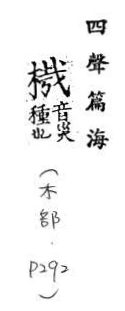 四聲篇海
音災
種也
(木部．P292)